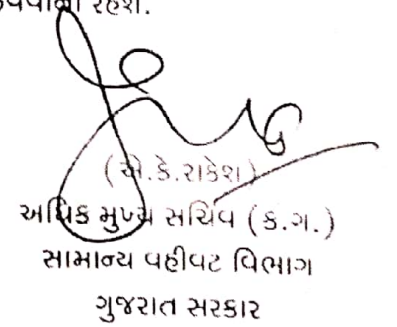 રહેશે.
(એ.કે.રાકેશ)
અધિક મુખ્ય સચિવ (ક.ગ.)
સામાન્ય વહીવટ વિભાગ
ગુજરાત સરકાર